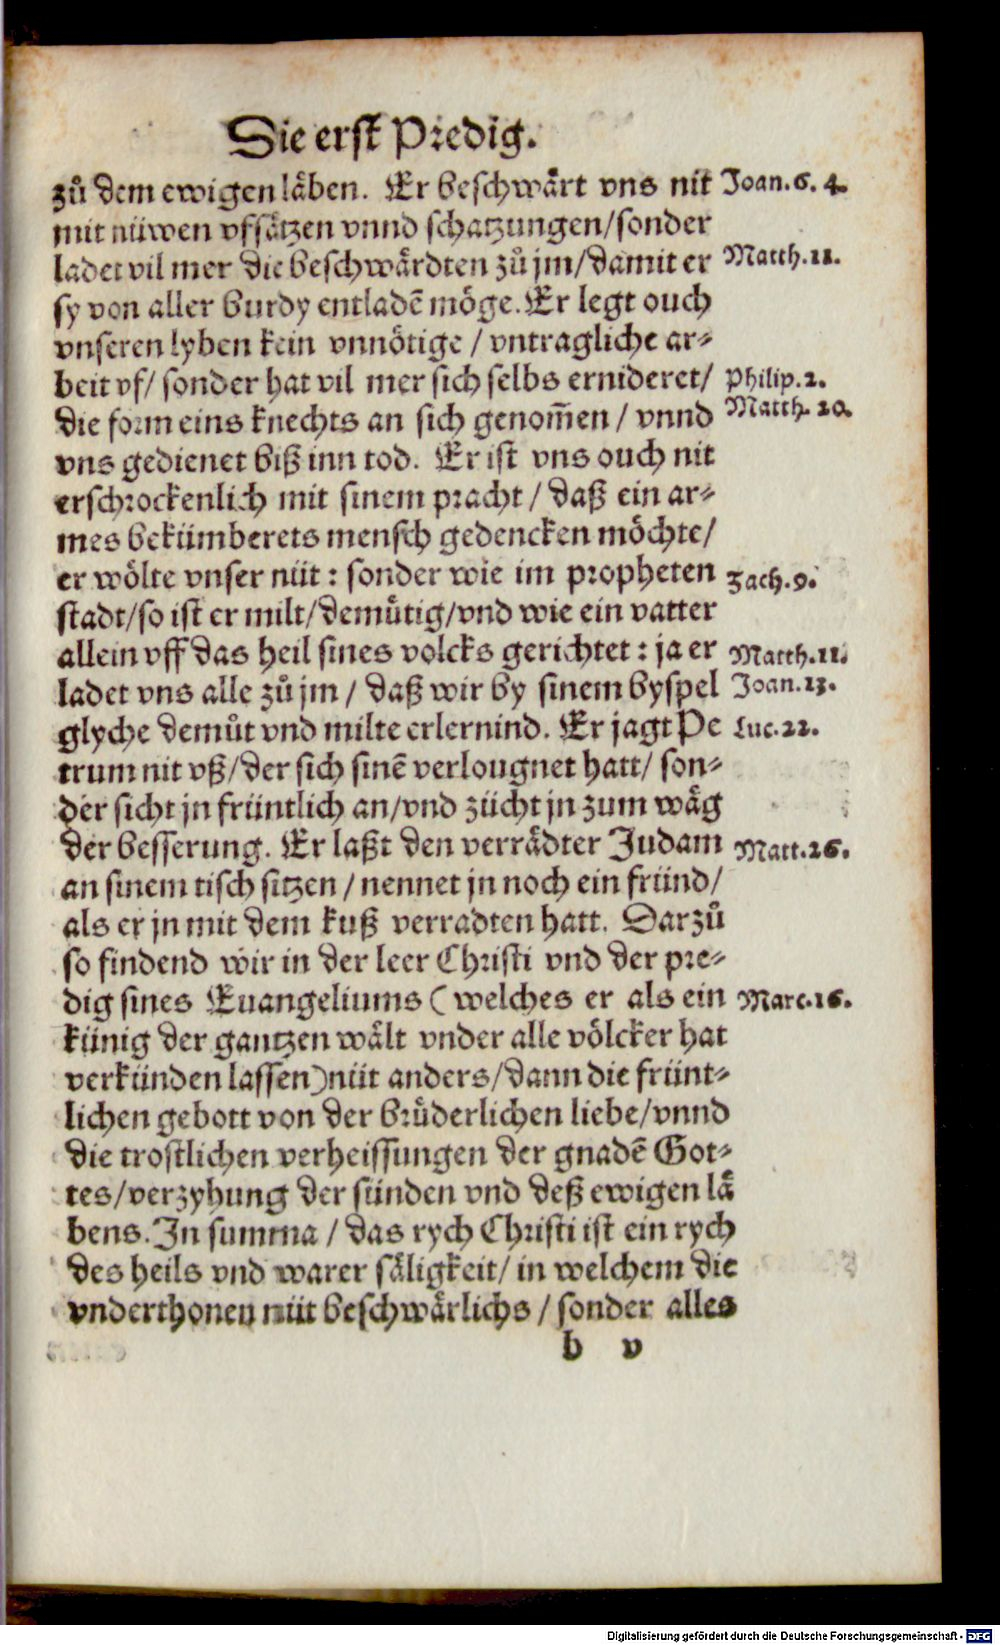 Die erst Predig.
zů dem ewigen läben. Er beschwärt vns nit Joan.6. 4.
mit nüwen vfsätzen vnnd schatzungen/sonder
ladet vil mer die beschwärdten zů jm/damit er Matth.11.
sy von aller burdy entladē möge. Er legt ouch
vnseren lyben kein vnnötige / vntragliche ar⸗
beit vf/ sonder hat vil mer sich selbs ernideret/ Philip.2.
die form eins knechts an sich genom̄en / vnnd Matth. 20.
vns gedienet biß inn tod. Er ist vns ouch nit
erschrockenlich mit sinem pracht / daß ein ar⸗
mes bekümberets mensch gedencken möchte/
er wölte vnser nüt : sonder wie im propheten Zach.9.
stadt/so ist er milt/demůtig/vnd wie ein vatter
allein vff das heil sines volcks gerichtet : ja er Matth.11.
ladet vns alle zů jm / daß wir by sinem byspel Joan.13.
glyche demůt vnd milte erlernind. Er jagt Pe Luc.22.
trum nit vß/der sich sinē verlougnet hatt/ son⸗
der sicht jn früntlich an/vnd zücht jn zum wäg
der besserung. Er laßt den verrädter Judam Matt.26.
an sinem tisch sitzen / nennet jn noch ein fründ/
als er jn mit dem kuß verradten hatt. Darzů
so findend wir in der leer Christi vnd der pre⸗
dig sines Euangeliums ( welches er als ein Marc.16.
künig der gantzen wält vnder alle völcker hat
verkünden lassen)nüt anders/dann die frünt⸗
lichen gebott von der brůderlichen liebe/vnnd
die trostlichen verheissungen der gnadē Got⸗
tes/verzyhung der sünden vnd deß ewigen lä
bens. In summa / das rych Christi ist ein rych
des heils vnd warer säligkeit/ in welchem die
vnderthonen nüt beschwärlichs / sonder alles
b v
Digitalisierung gefördert durch die Deutsche Forschungsgemeinschaft - DFG